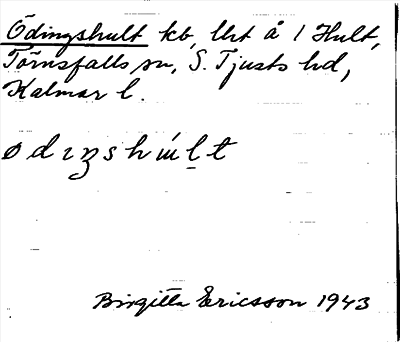 Ödingshult kb, lht å 1 Hult,
Törnsfalls sn, S. Tjusts hd,
Kalmar l.
ødıŋshúl̥t
Birgitta Ericsson 1943